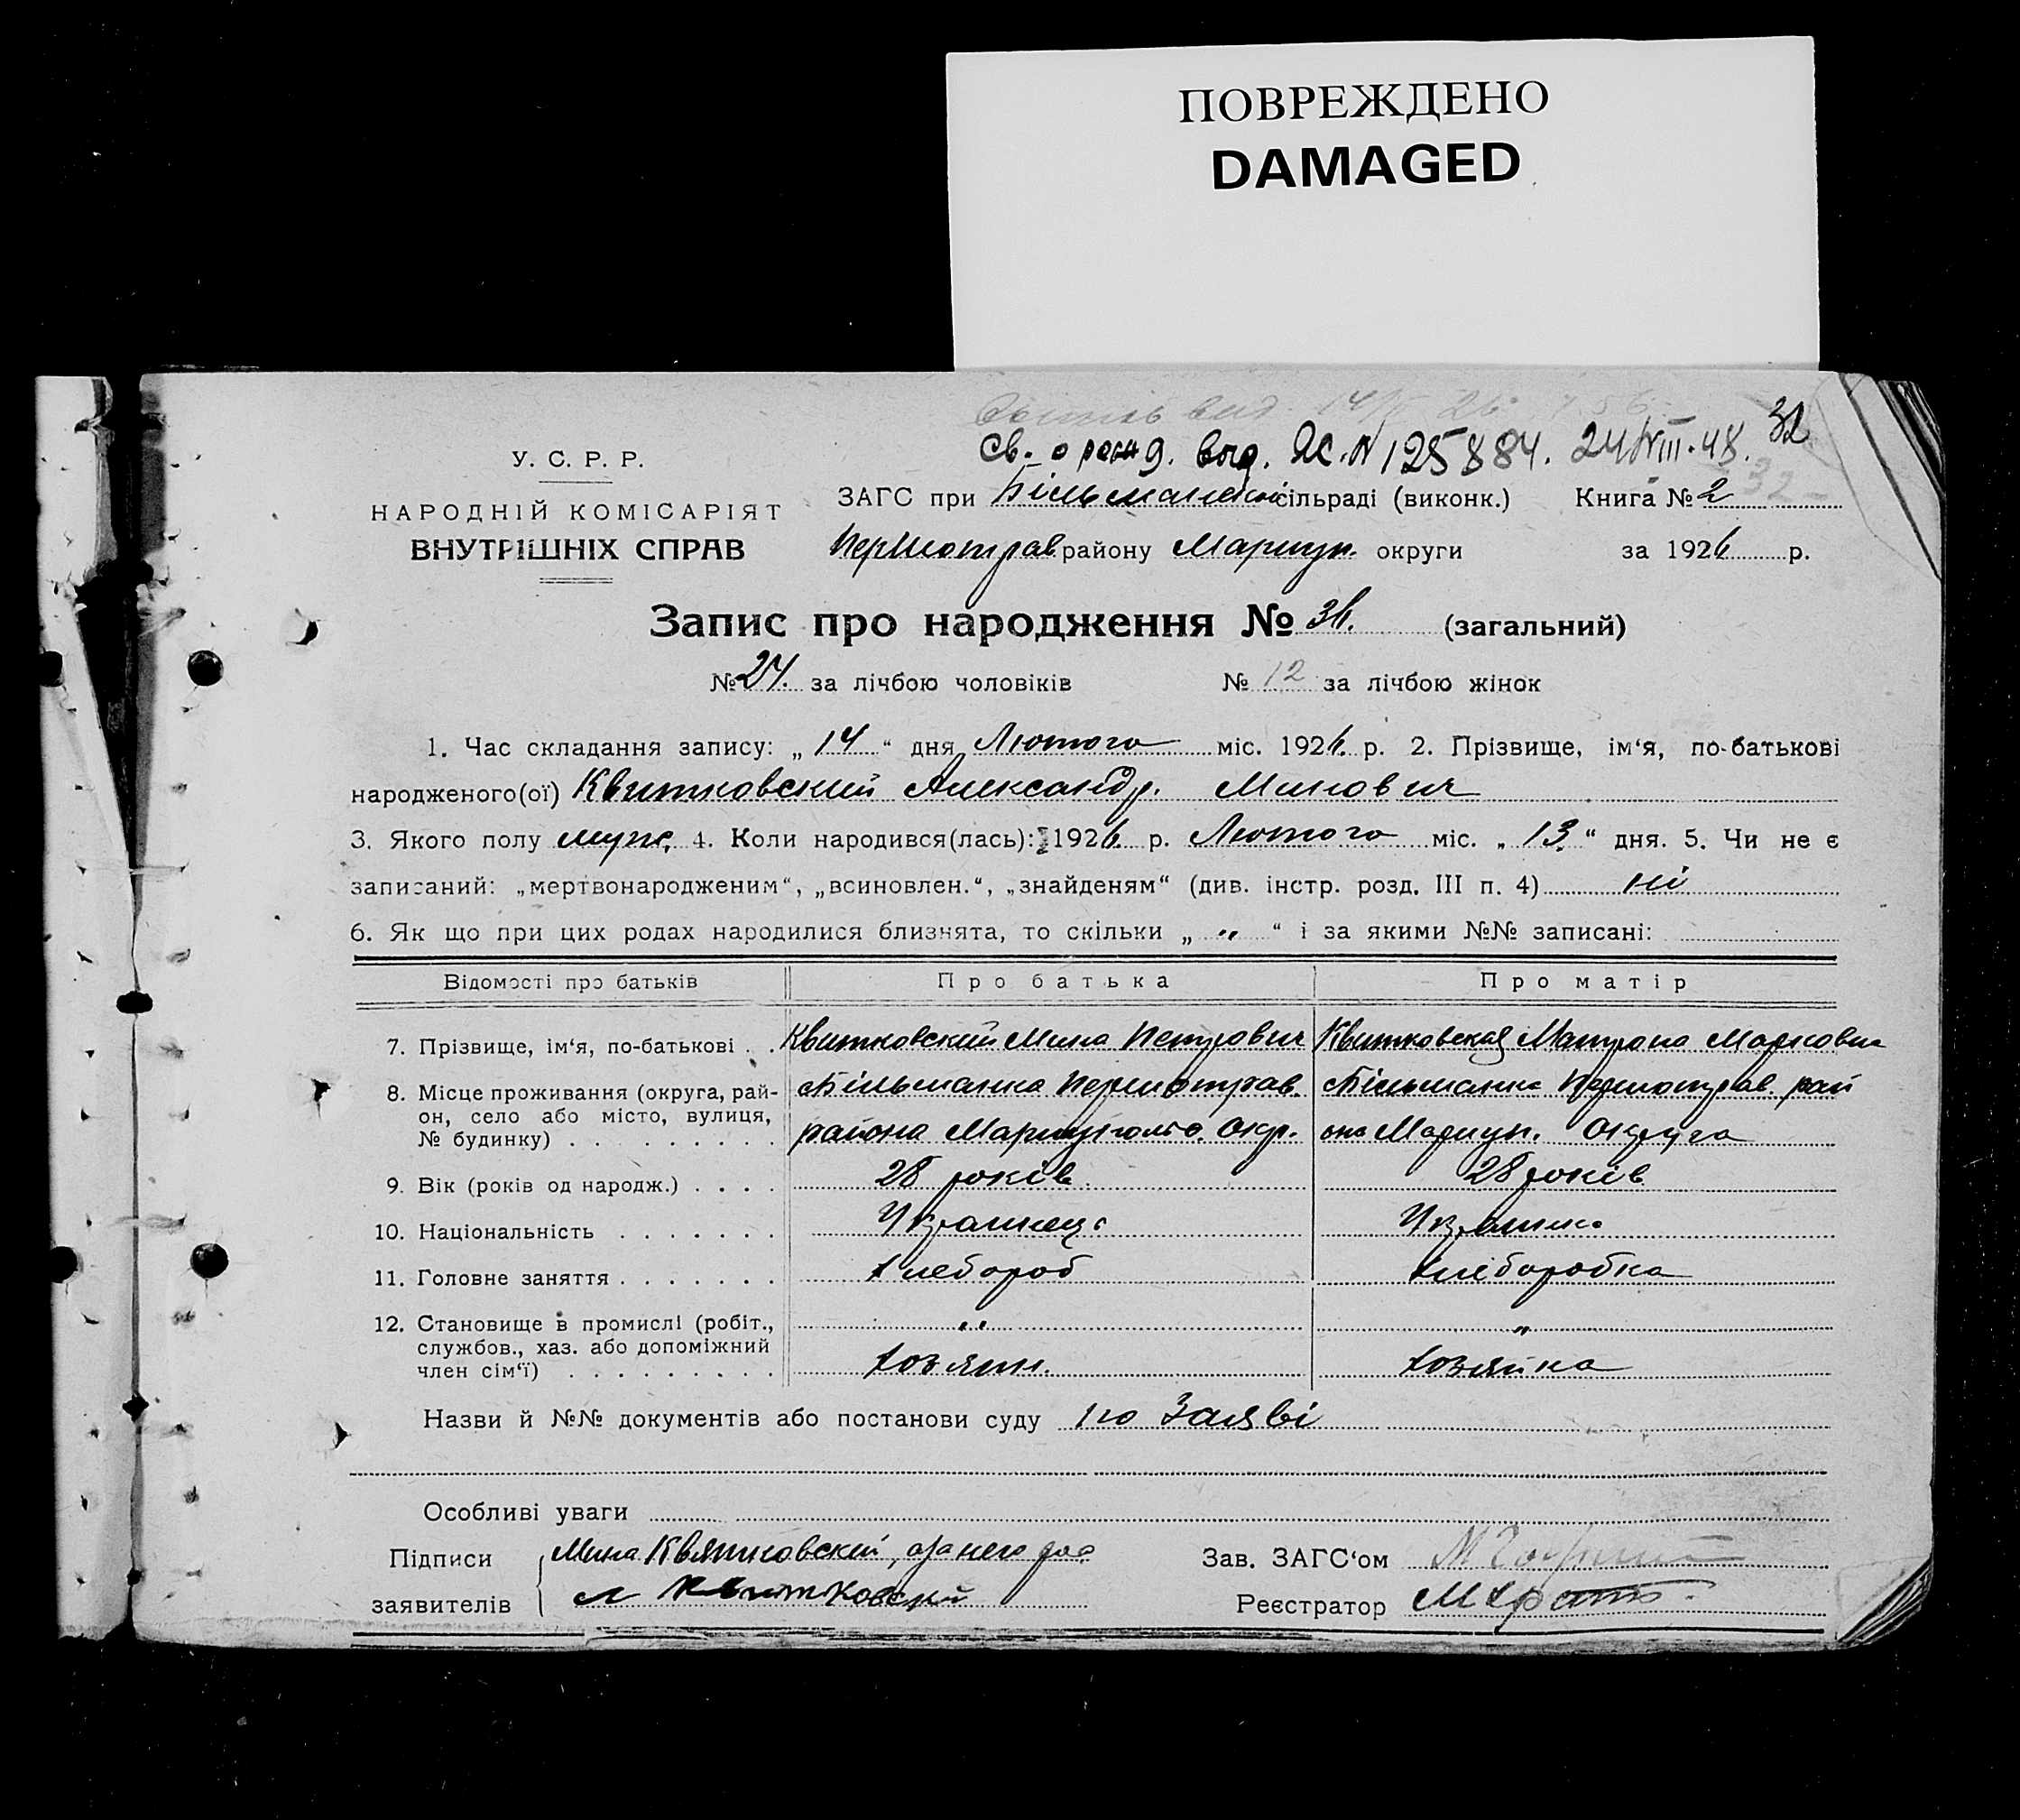 ПОВРЕЖДЕНО
DAMAGED
Св. о рожд. выд. ЯС. N 125884. 24/VIII-48. 32
У. С. Р. Р.
НАРОДНІЙ КОМІСАРІЯТ
ВНУТРІШНІХ СПРАВ
ЗАГС при Більманській сільраді (виконк.) Книга № 2
Першотрав. району Мариуп. округи за 1926 р.
Запис про народження № 36. (загальний)
№ 24. за лічбою чоловіків № 12 за лічбою жінок
1. Час складання запису: „ 14 “ дня Лютого міс. 1926 р. 2. Прізвище, ім‘я, по-батькові
народженого(ої) Квитковский Александр. Минович
3. Якого полу муж. 4. Коли народився(лась): 1926 р. Лютого міс. „ 13 “ дня. 5. Чи не є
записаний: „мертвонародженим“, „всиновлен.“, „знайденям“ (див. інстр. розд. III п. 4) ні
6. Як що при цих родах народилися близнята, то скільки „ „ “ і за якими №№ записані:
Відомості про батьків Про батька Про матір
7. Прізвище, ім‘я, по-батькові . . Квитковский Мина Петрович Квитковская Матрона Марковна
8. Місце проживання (округа, рай-
он, село або місто, вулиця,
№ будинку) . . . . . . . . .
Більманка Першотрав.
района Мариупольс. Окр.
Більманка Першотрав. рай
она Мариуп. Округа
9. Вік (років од народж.) . . . . 28 років 28 років
10. Національність . . . . . . . Украинець Украинка
11. Головне заняття . . . . . . . Хлебороб Хліборобка
12. Становище в промислі (робіт., „ „
службов., хаз. або допоміжний
член сім‘ї) . . . . . . . . . Хозяин. Хозяйка
Назви й №№ документів або постанови суду по Заяві
Особливі уваги
Підписи Мина Квятковский, за него
заявителів Квитковский
Зав. ЗАГС‘ом
Реєстратор